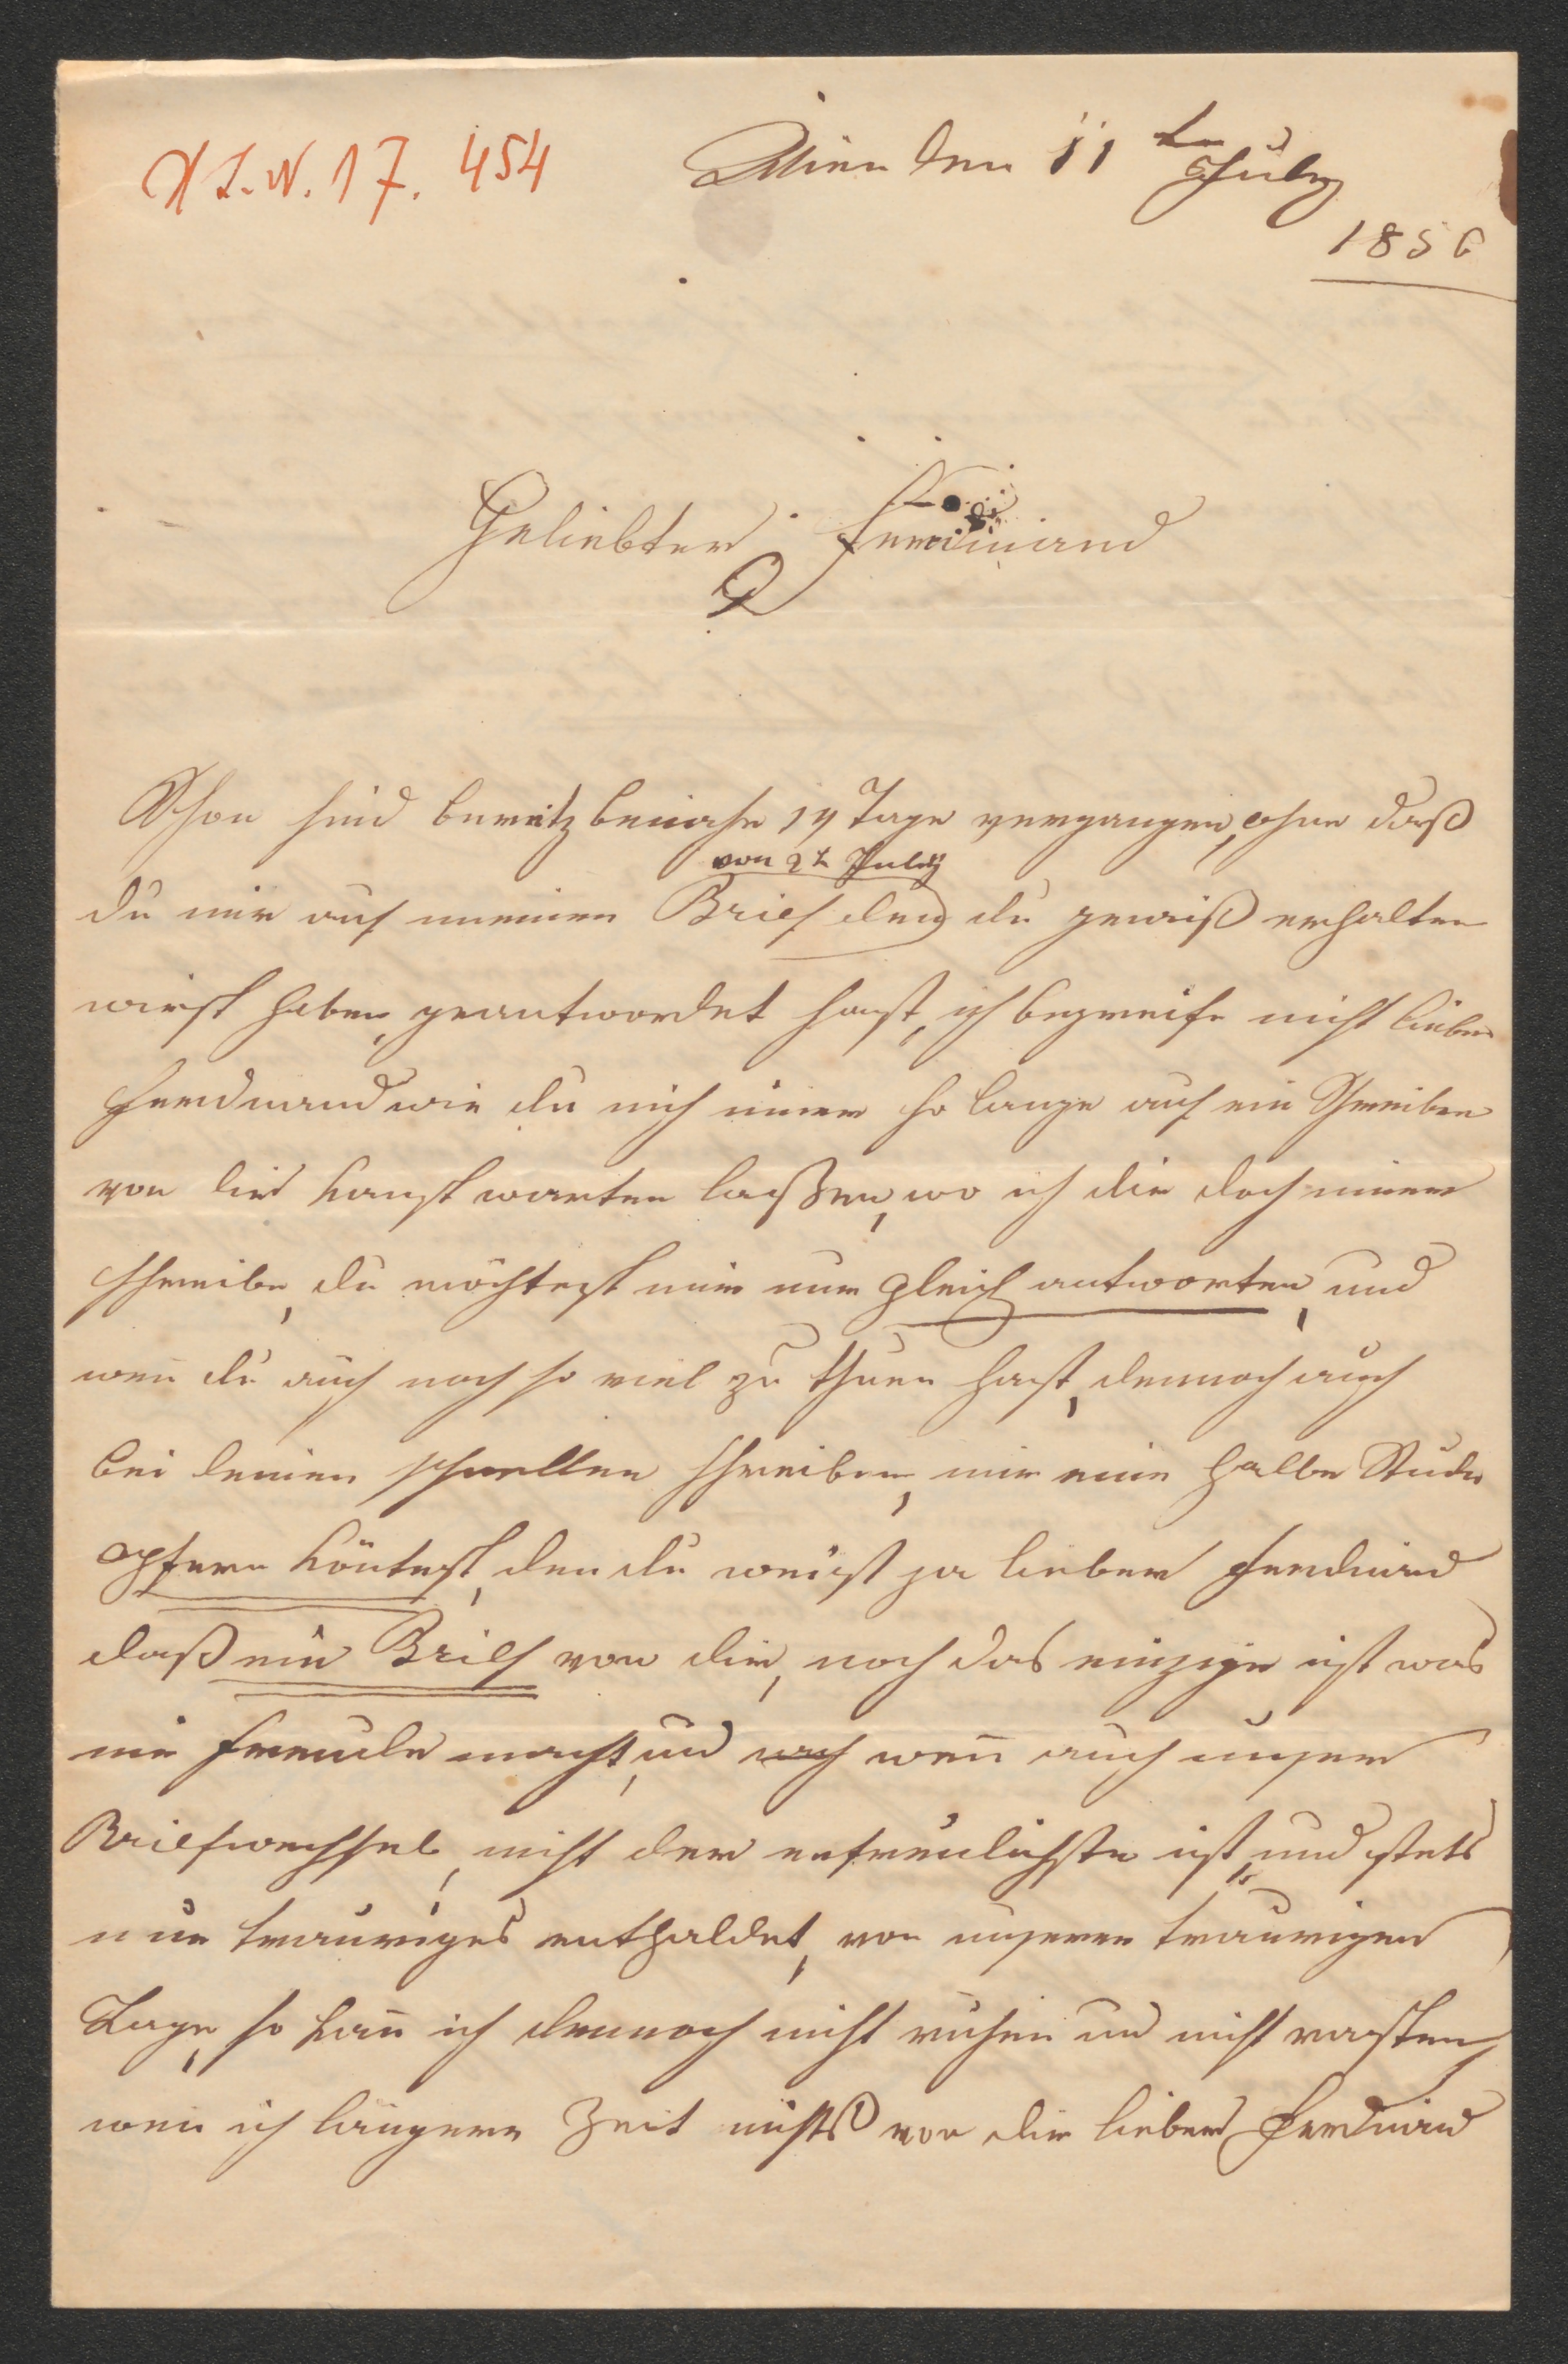 H I. N. 17. 454
Wien den 11ten July
1856
Geliebter Ferdinand
Schon sind bereitz beinahe 14 Tage vergangen, ohne daß
von 2t July
du mir auf meinen Brief den du gewiß erhalten
wirst haben, geantwordet hast, ich begreife nicht lieber
Ferdinand wie du mich imer so lange auf ein Schreiben
von dir kanst warten laßen, wo ich dir doch imer
schreibe, du möchtest mir nur gleich antworten, und
wen du auch noch so viel zu thuen hast, dennoch auch
bei deinen schnellen schreiben, mir eine halbe Stunde
opfern köntest, den du weist ja lieber Ferdinand
daß ein Brief von dir, noch das einzige ist was
mir Freude macht, und auch wen auch unser
Briefwechsel, nicht der erfreulichste ist, und stets
nur trauriges enthaldet, von unseren traurigen
Lage, so kan ich dennoch nicht ruhen und nicht rasten,
wen ich längere Zeit nichts von dir lieber Ferdinand